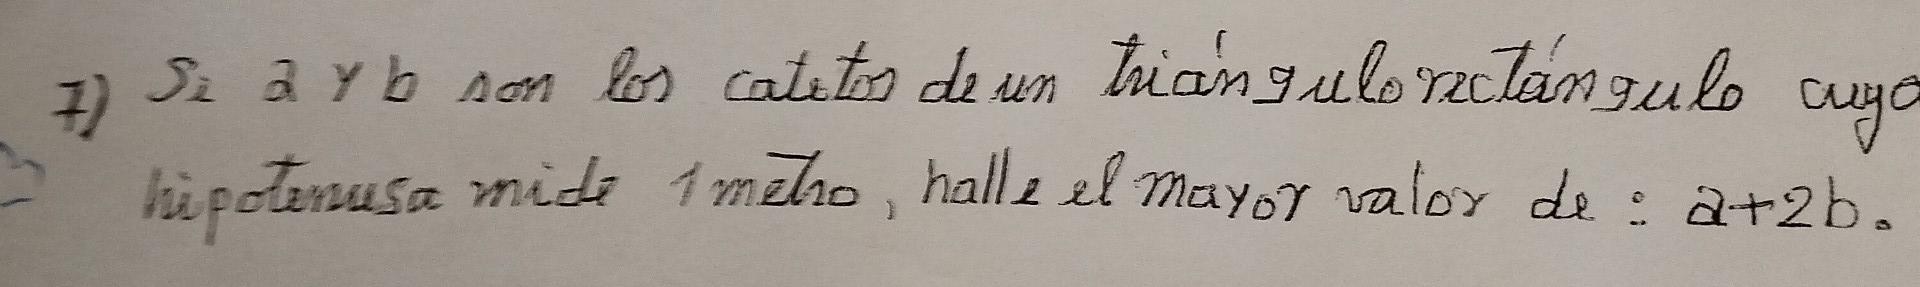 7) Si a y b son los catetos de un triángulo rectángulo cuya
hipotenusa mide 1 metro, halle el mayor valor de : a+2b.